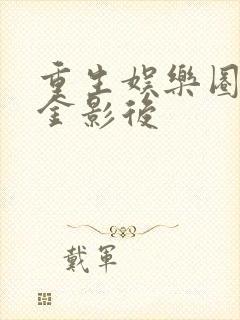 重生娛樂圈
全影後
戴軍